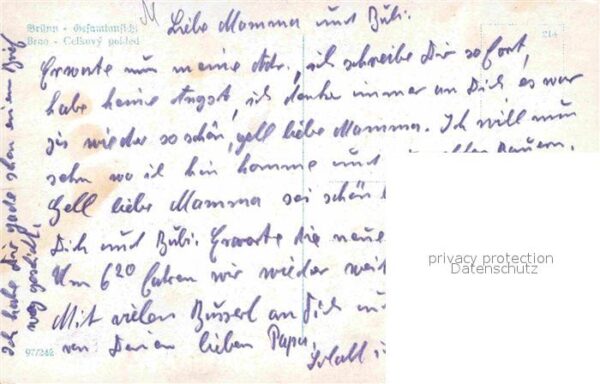 Liebe Mamma und Bubi.
Brünn - Gesamtansicht
Brno - Celkový pohled
214
Erwarte nun meine Adr., ich schreibe Dir sofort,
habe keine Angst, ich denke immer an Dich es war
ja wieder so schön, gell liebe Mamma. Ich will nun
sehn wo ich hin komme und
Gell liebe Mamma sei schön
Dich und Bubi. Erwarte die neue
Um 6 20 fahren wir wieder weit
Mit vielen Busserl an Dich und
von Deinen lieben Papa.
Ich habe Dir gerade schon einen Brief
weg geschickt.
97/242
privacy protection
Datenschutz